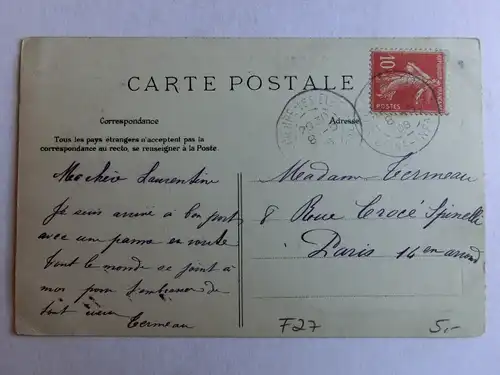 CARTE POSTALE
10
POSTES
Correspondance
Adresse
Tous les pays étrangers n'acceptent pas la
correspondance au recto, se renseigner à la Poste.
Ma chère Laurentine
Je suis arrivé a bon port
avec une panne en route
tout le monde se joint à
moi pour t'embrasser de
tout cœur
Termeau
Madame Termeau
8 Rue Crocé Spinelli
Paris 14 em arrond
F27
5,-